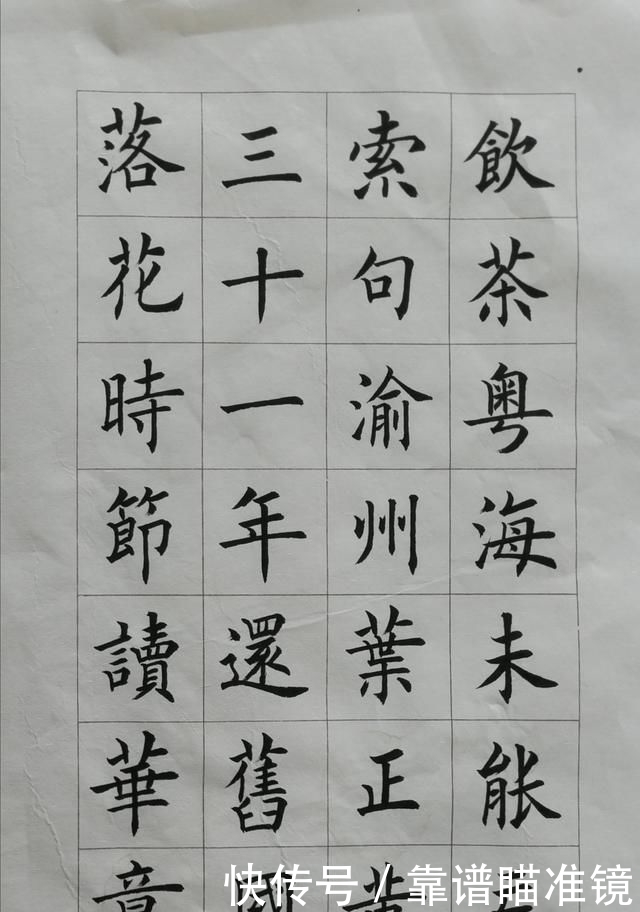 飲茶粤海未能
索句渝州葉正黄
三十一年還舊國
落花時節讀華章
快传号/靠谱瞄准镜